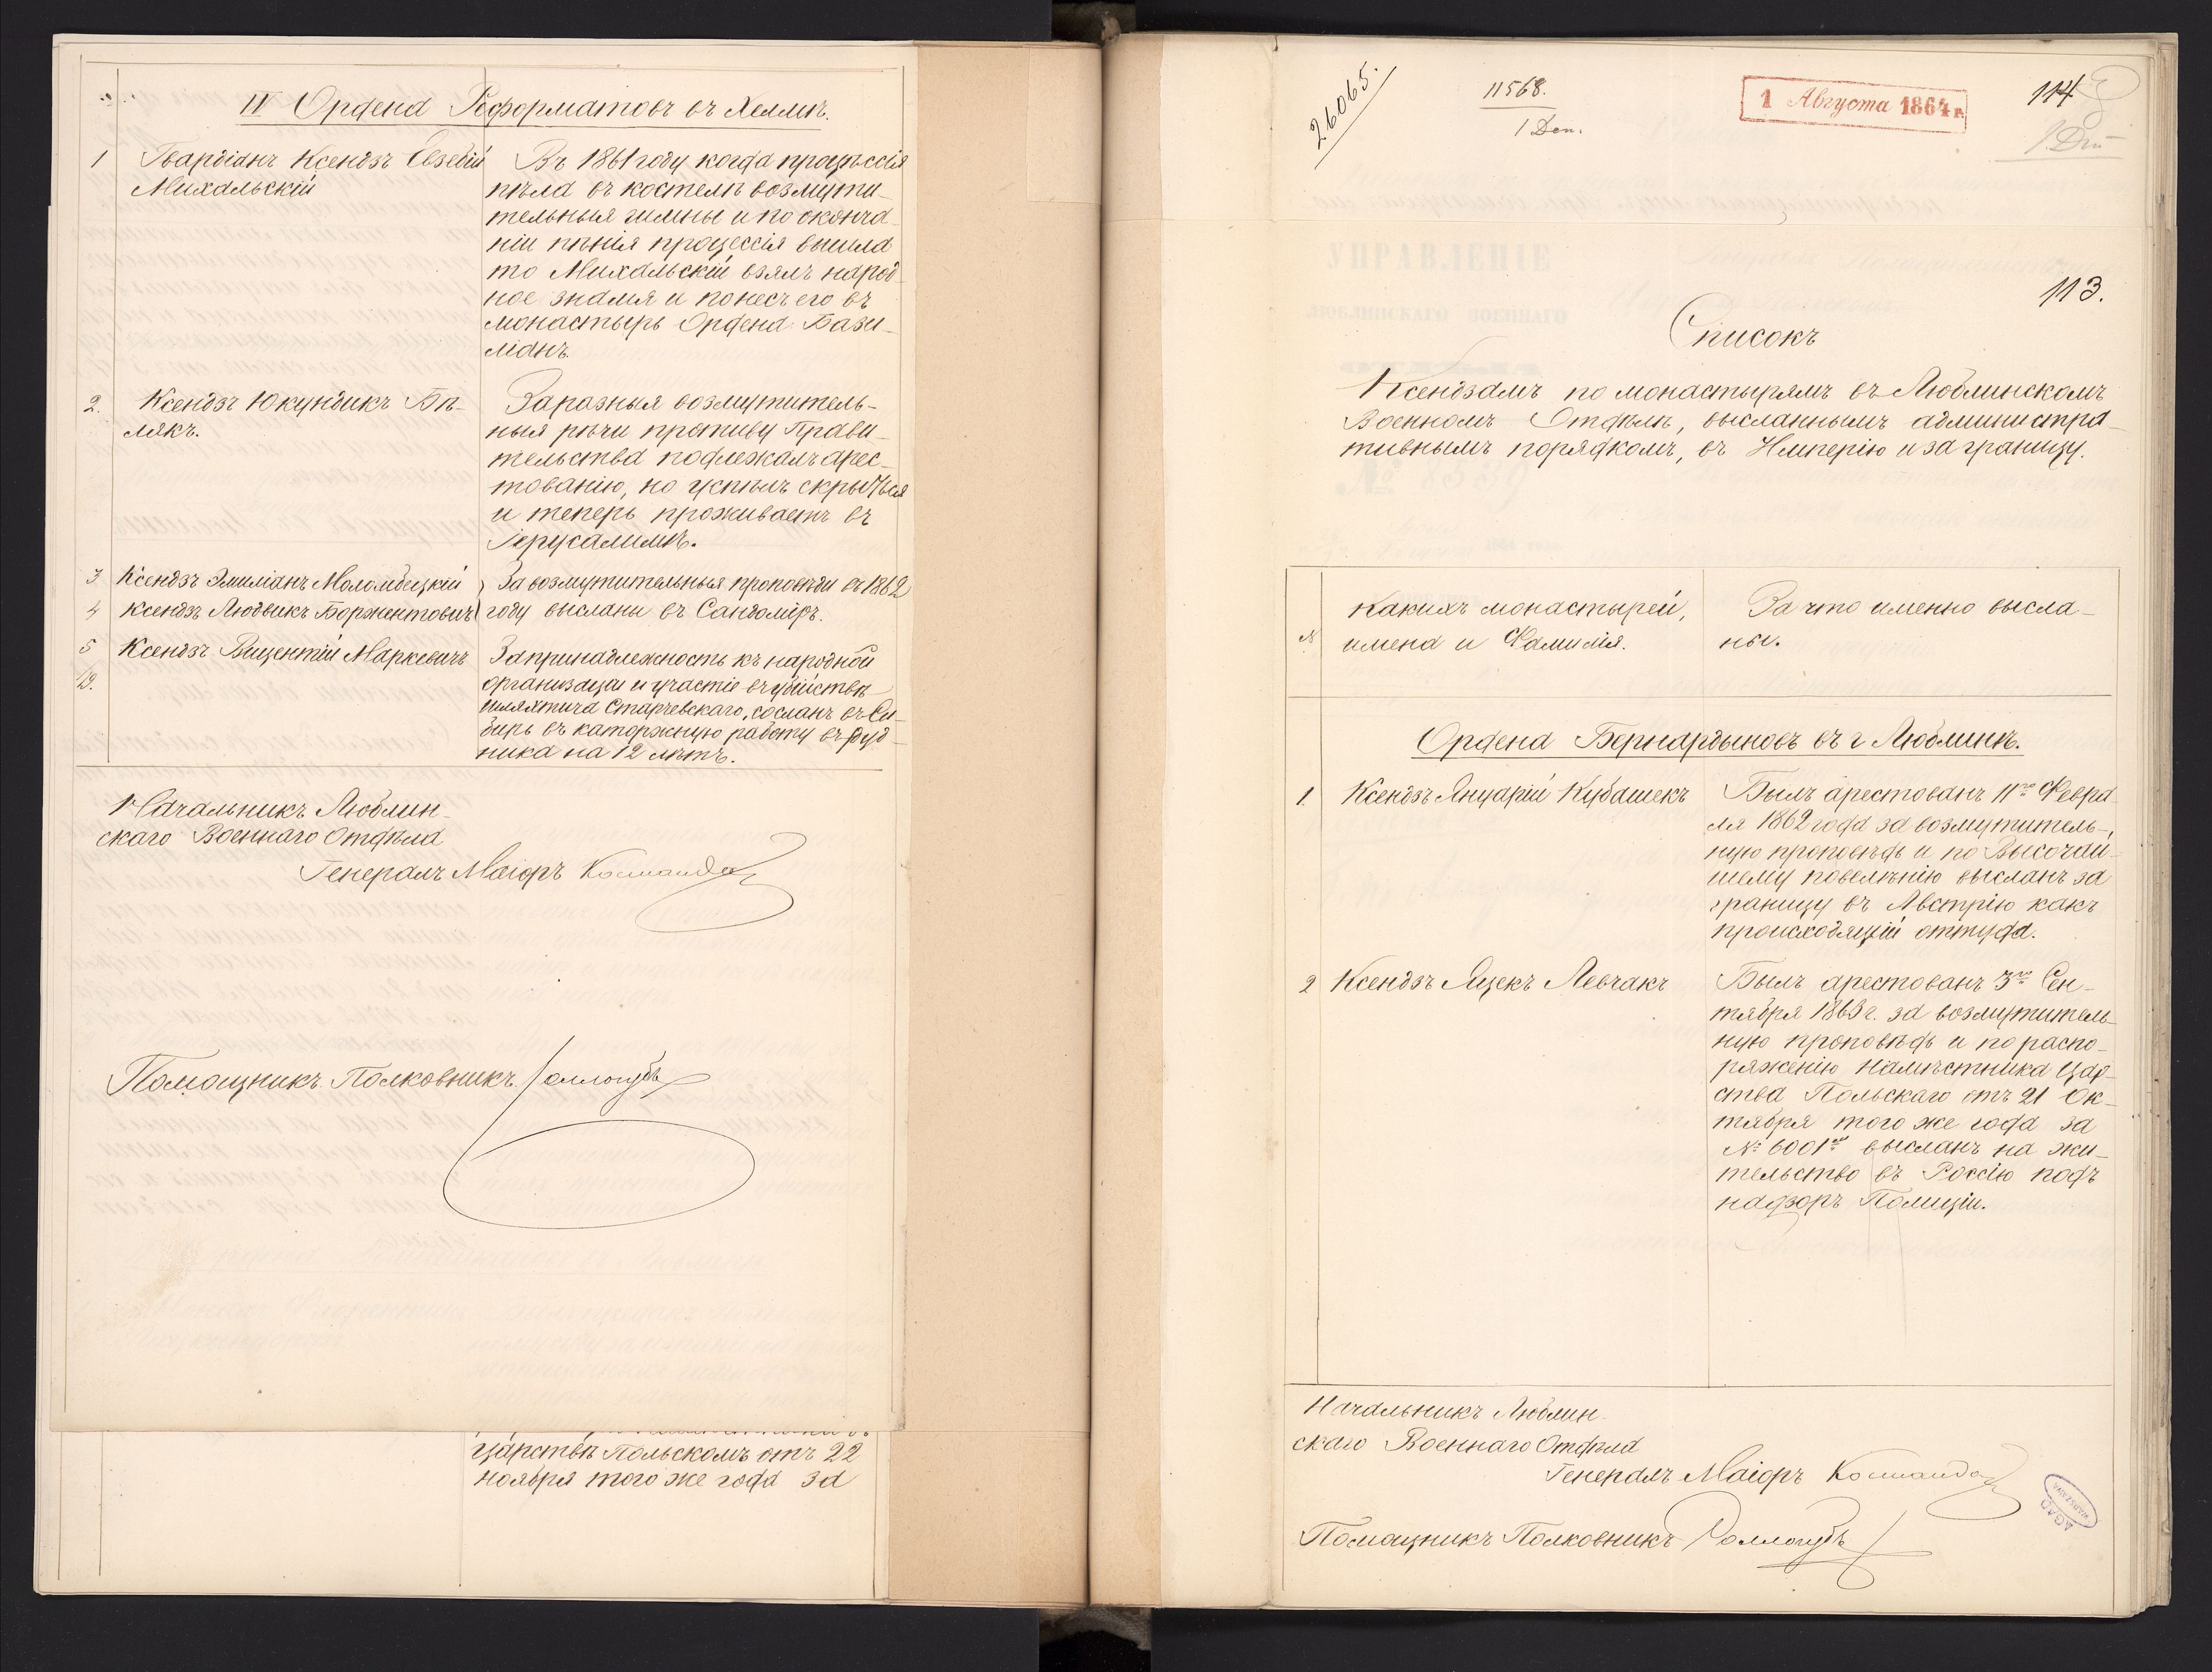 IV Ордена Реформатовъ въ Хелмѣ.
1 Гвардіанъ Ксендзъ Евзебій
Михальскій
Въ 1861 году когда процѣссія
пѣла въ костелѣ возмути-
тельныя гимны и по оконча-
ніи пѣнія процессія вышла
то Михальскій взялъ народ-
ное знамя и понесъ его въ
монастырь Ордена Бази-
ліанъ.
2. Ксендзъ Юкундикъ Бѣ-
лякъ.
За разныя возмутитель-
ныя рѣчи противу Прави-
тельства подлежалъ арес-
тованію, но успѣлъ скрыться
и теперь проживаетъ въ
Іерусалимѣ.
3 Ксендзъ Эмиліанъ
4 Ксендзъ Людвикъ Боржентовичъ
За возмутительныя проповѣди въ 1862
году высланы въ Сандоміръ.
5 Ксендзъ Вицентій Маркевичъ
19.
За принадлежность къ народной
организаціи и участіе въ убійствѣ
шляхтича Старчевскаго, сосланъ въ Си-
бирь въ каторжную работу въ руд-
ника на 12 лѣтъ.
Начальникъ Люблин-
скаго Военнаго Отдѣла
Генералъ Маіоръ
Помощникъ Полковникъ
Царствѣ Польскомъ отъ 22
ноября того же года за
26065.
11568.
1 Ден.
1 Августа 1864 г.
114
113.
УПРАВЛЕНІЕ
ЛЮБЛИНСКАГО ВОЕННАГО
Списокъ
Ксендзамъ по монастырямъ въ Люблинскомъ
Военномъ Отдѣлѣ, высланнымъ администра-
тивнымъ порядкомъ, въ Имперію и за границу.
№
какихъ монастырей,
имена и Фамилія.
За что именно высла-
ны.
Ордена Бернардыновъ въ г Люблинѣ.
1. Ксендзъ Януарій Кубашекъ
Былъ арестованъ 11го Февра-
ля 1862 года за возмутитель-
ную проповѣдь и по Высочай-
шему повелѣнію высланъ за
границу въ Австрію какъ
происходящій оттуда.
2 Ксендзъ Яцекъ Левчакъ
Былъ арестованъ 3го Сен-
тября 1863 г. за возмутитель-
ную проповѣдь и по распо-
ряженію Намѣстника Цар-
ства Польскаго отъ 21 Ок-
тября того же года за
№ 6001мъ высланъ на жи-
тельство въ Россію подъ
надзоръ Полиціи.
Начальникъ Люблин-
скаго Военнаго Отдѣла
Генералъ Маіоръ
Помощникъ Полковникъ
AGAD
WARSZAWA